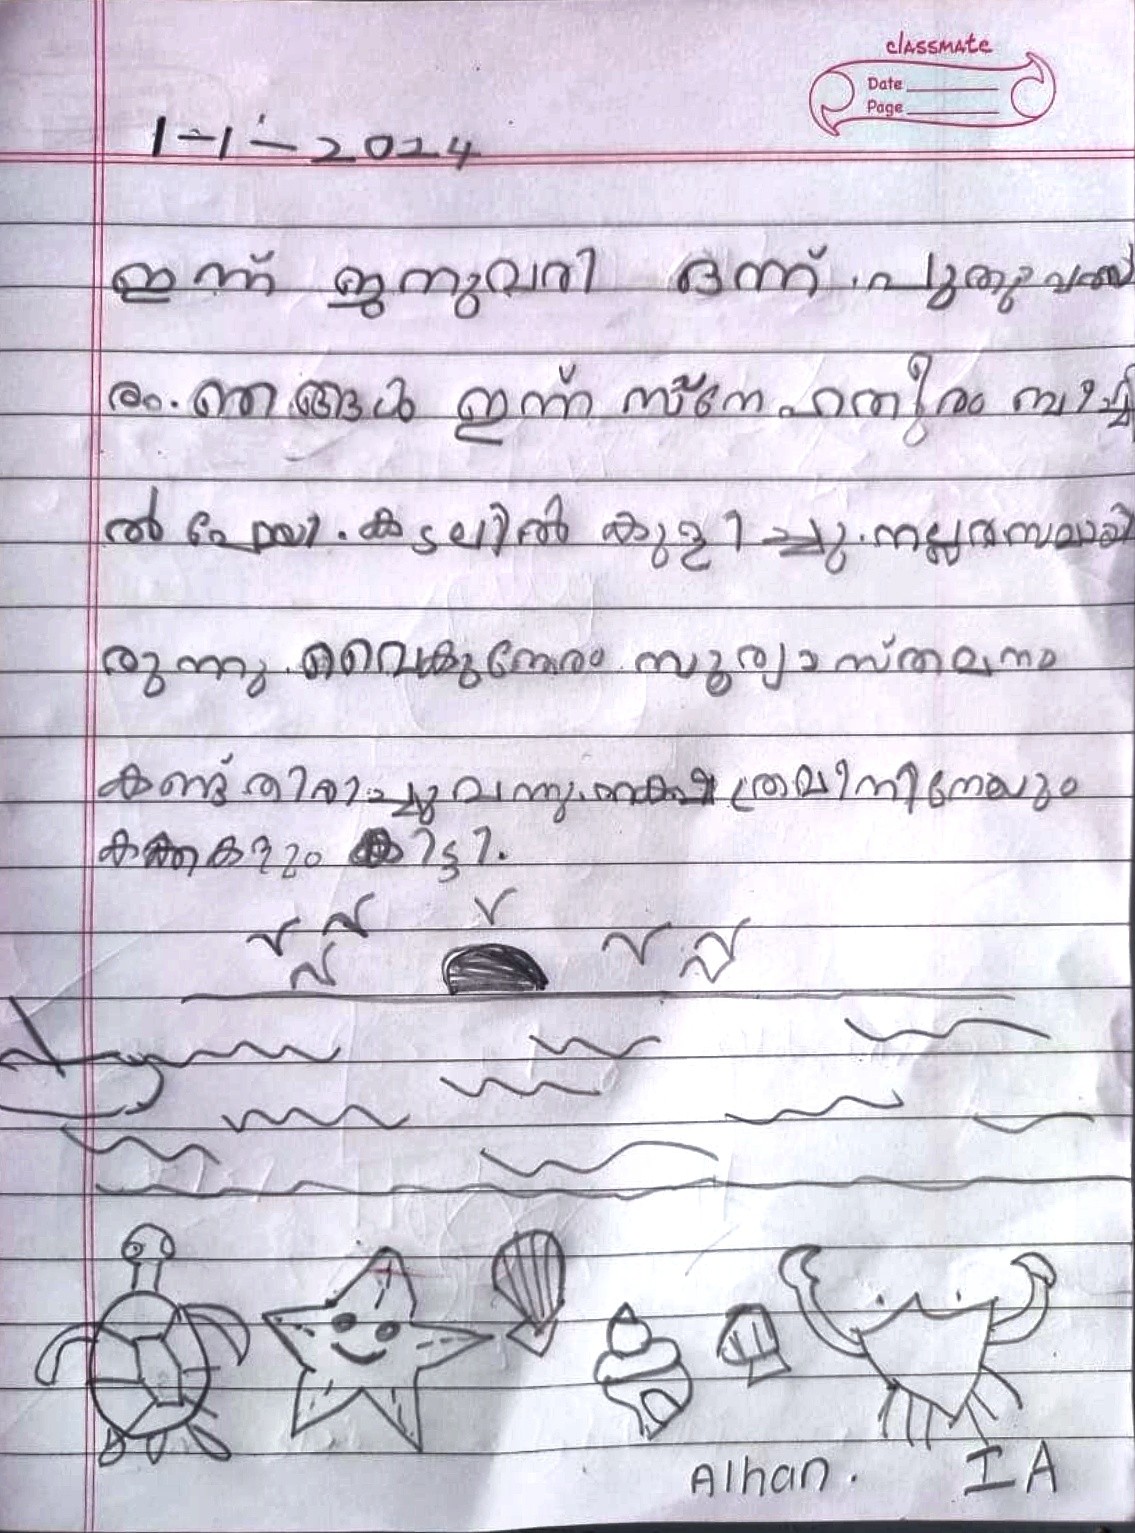 classmate
Date
Page
1-1-2024
ഇന്ന് ജനുവരി ഒന്ന്. പുതുവത്സ
രം. ഞങ്ങൾ ഇന്ന് സ്നേഹതീരം ബീച്ചി
ൽ പോയി. കടലിൽ കുളിച്ചു. നല്ല രസമായി
രുന്നു. വൈകുന്നേരം സൂര്യാസ്തമനം
കണ്ട് തിരിച്ചു വന്നു. നക്ഷത്രമീനിനേയും
കക്കകളും കിട്ടി.
Alhan. I A